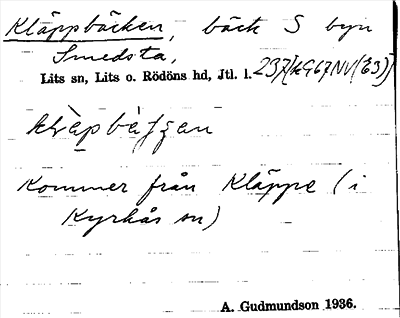 Kläppbäcken, bäck S byn
Smedsta,
Lits sn, Lits o. Rödöns hd, Jtl. l.
Kommer från Kläppe (i
Kyrkås sn)
A. Gudmundson 1936.